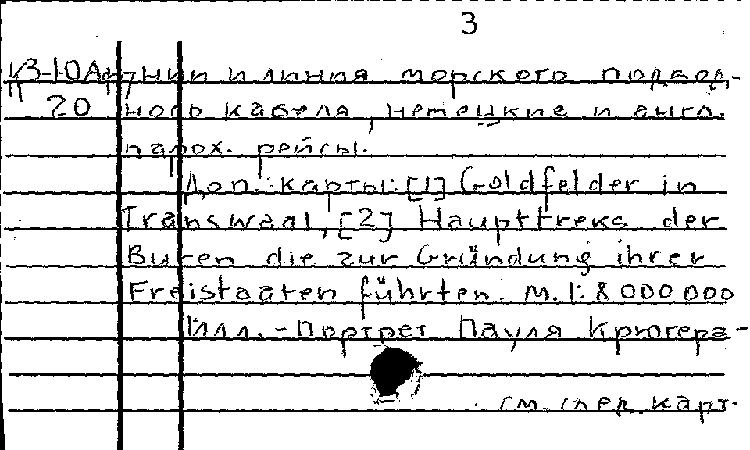 3
К3-10Аф- тнии и линия морского подвод-
20 ного кабеля, немецкие и англ.
парох. рейсы.
Доп. карты: [1] Goldfelder in
Transwaal, [2] Haupttreks der
Buren die zur Gründung ihrer
Freistaaten führten. М.1:8 000 000
Илл.-Портрет Пауля Крюгера-
см. след. карт.